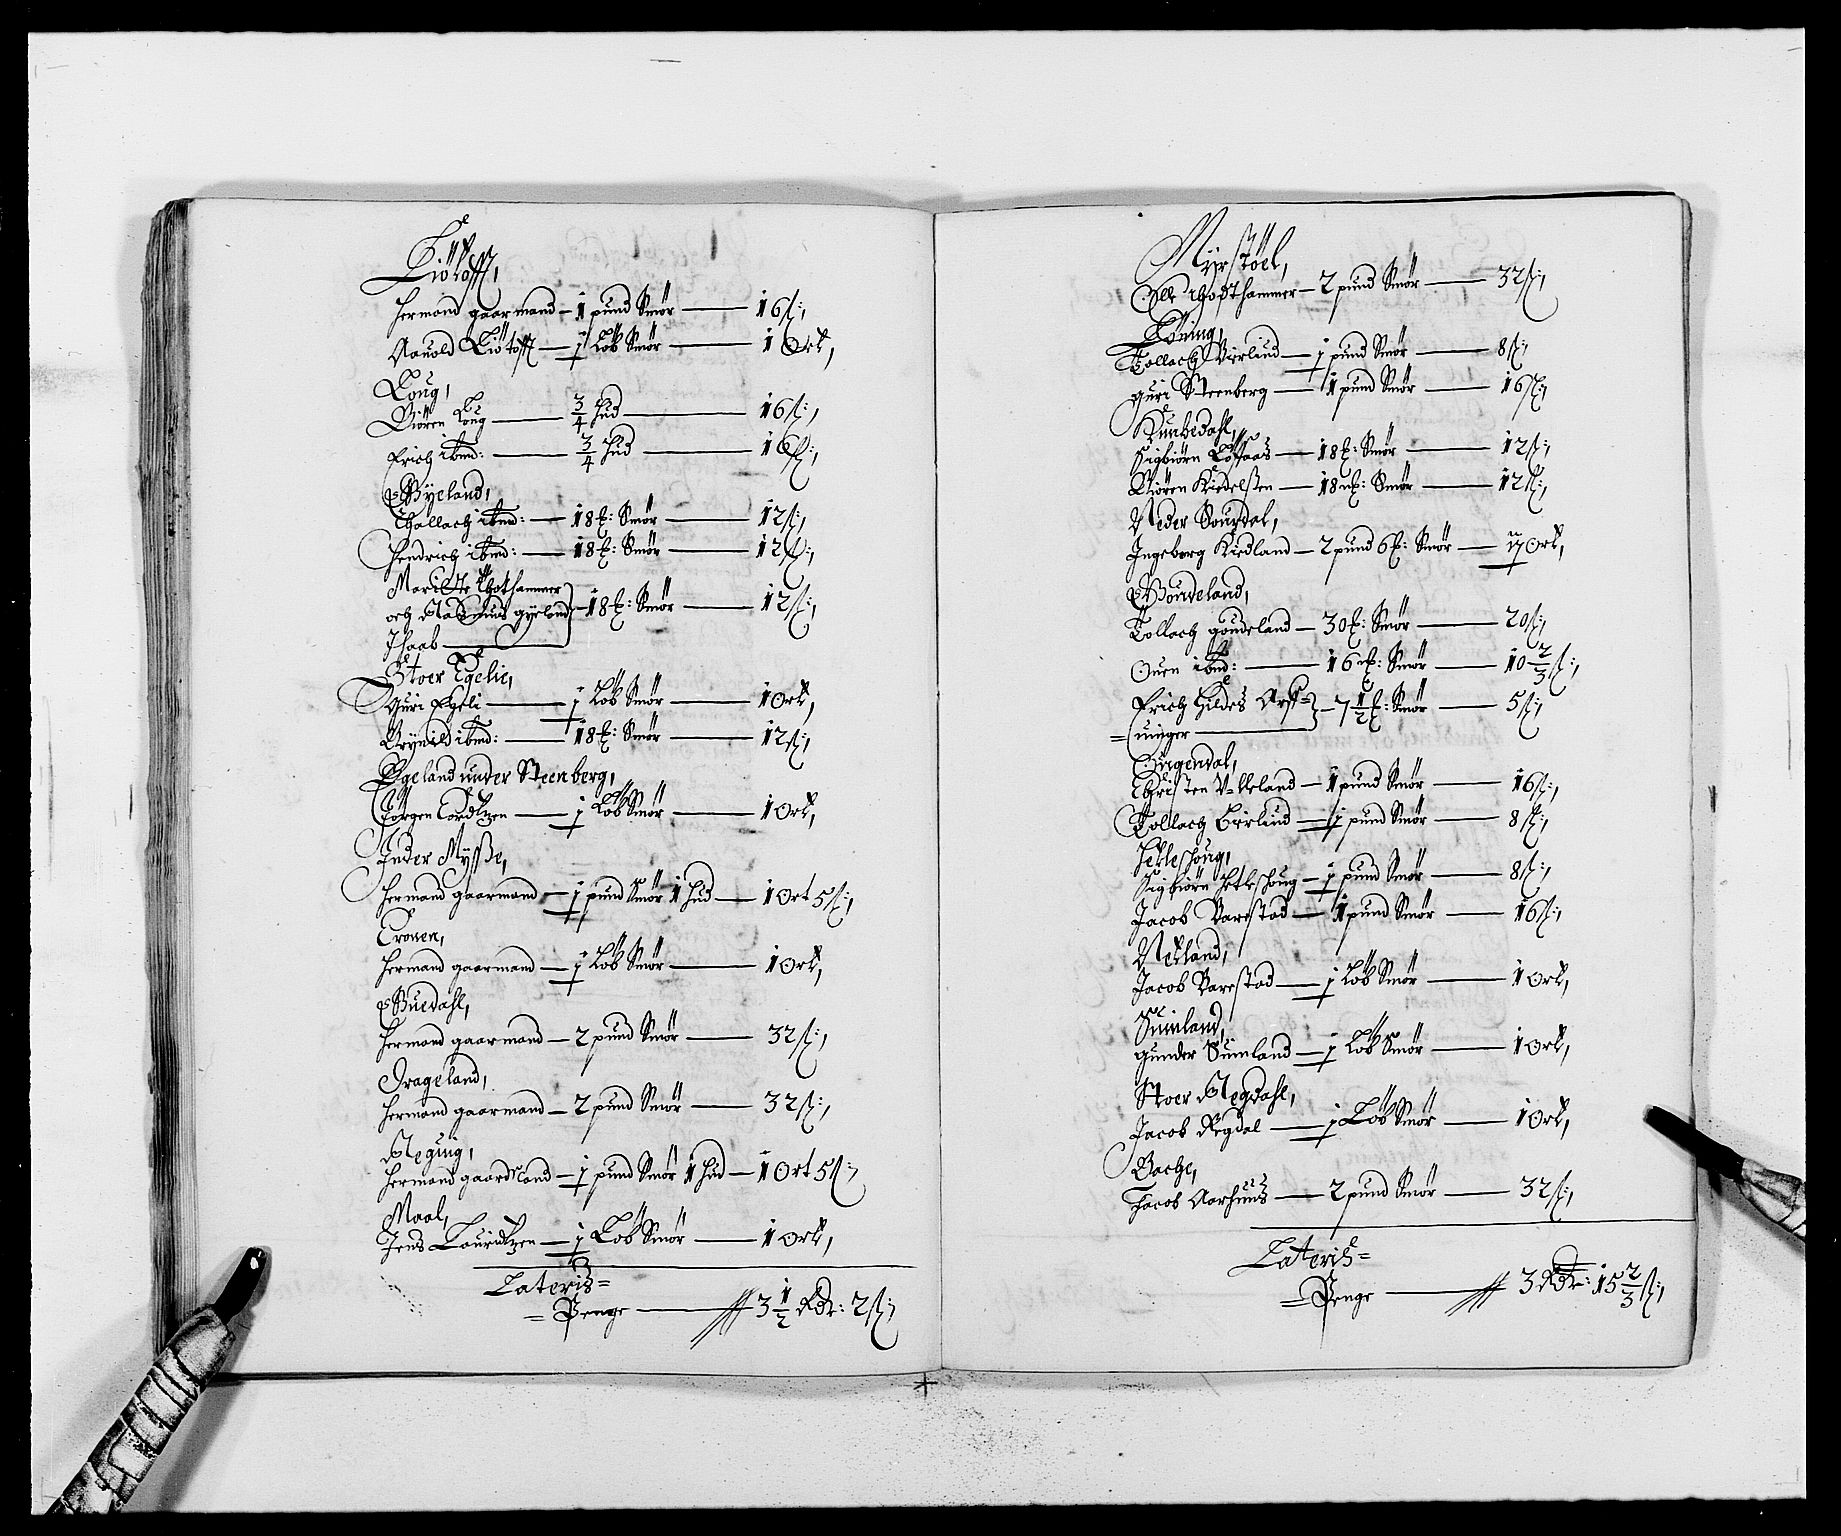 Liötofft,
Hermand gaarmand — 1 pund Smör — 16 ß:,
Aauold Liötofft — 1 Löb Smör — 1 Ort,
Loug,
Biören Loug — 3/4 Hud — 16 ß:,
Erich ibmd: — 3/4 Hud — 16 ß:,
Gyeland,
Thollach ibmd: — 18 ℔: Smör — 12 ß:,
Hendrich ibmd: — 18 ℔: Smör — 12 ß:,
Marithe Thothammer
och Rasmus Gyeland — 18 ℔: Smör — 12 ß:,
Ihaab
Stoer Egelie,
Guri Egeli — 1 Löb Smör — 1 Ort,
Brynild ibmd: — 18 ℔: Smör — 12 ß:,
Egeland under Steenberg,
Jörgen Cordtzen — 1 Löb Smör — 1 Ort,
Inder Mysse,
Hermand gaarmand — 1 pund Smör 1 Hud — 1 Ort 5 ß:,
Tronen,
Hermand gaarmand — 1 Löb Smör — 1 Ort,
Buedahl,
Hermand gaarmand — 2 pund Smör — 32 ß:,
Drageland,
Hermand gaarmand — 2 pund Smör — 32 ß:,
Reging,
Hermand gaardmand — 1 pund Smör 1 Hud — 1 Ort 5 ß:,
Maal,
Jens Lauridtzen — 1 Löb Smör — 1 Ort,
Lateris=
=Penge — 3 1/2 Rdr: 2 ß:,
Myrstöel,
Olle Thothammer — 2 pund Smör — 32 ß:,
Löning,
Tollach Birlund — 1 pund Smör — 8 ß:,
Guri Steenberg — 1 pund Smör — 16 ß:,
Kunhedahl,
Sigbiörn Löffaas — 18 ℔: Smör — 12 ß:,
Biören Kiedelßen — 18 ℔: Smör — 12 ß:,
Neder Sourdal,
Ingeborg Kiedland — 2 pund 6 ℔: Smör — Ort,
Goudeland,
Tollach goudeland — 30 ℔: Smör — 20 ß:,
Ouen ibmd: — 16 ℔: Smör — 10 2/3 ß:,
Erich Hildes Arff=
=uinger — 7 1/2 ℔: Smör — 5 ß:,
Öugendal,
Christen — 1 pund Smör — 16 ß:,
Tollach Birlund — 1 pund Smör — 8 ß:,
Jetleshoug,
Sigbiörn Jetleshoug — 1 pund Smör — 8 ß:,
Jacob Barstad — 1 pund Smör — 16 ß:,
Netland,
Jacob Barstad — 1 Löb Smör — 1 Ort,
Suinland,
Gunder Suinland — 1 Löb Smör — 1 Ort,
Stoer Regdahl,
Jacob Regdal — 1 Löb Smör — 1 Ort,
Bache,
Jacob Aarhuus — 2 pund Smör — 32 ß:,
Lateris=
=Penge — 3 Rdr: 15 2/3 ß:,